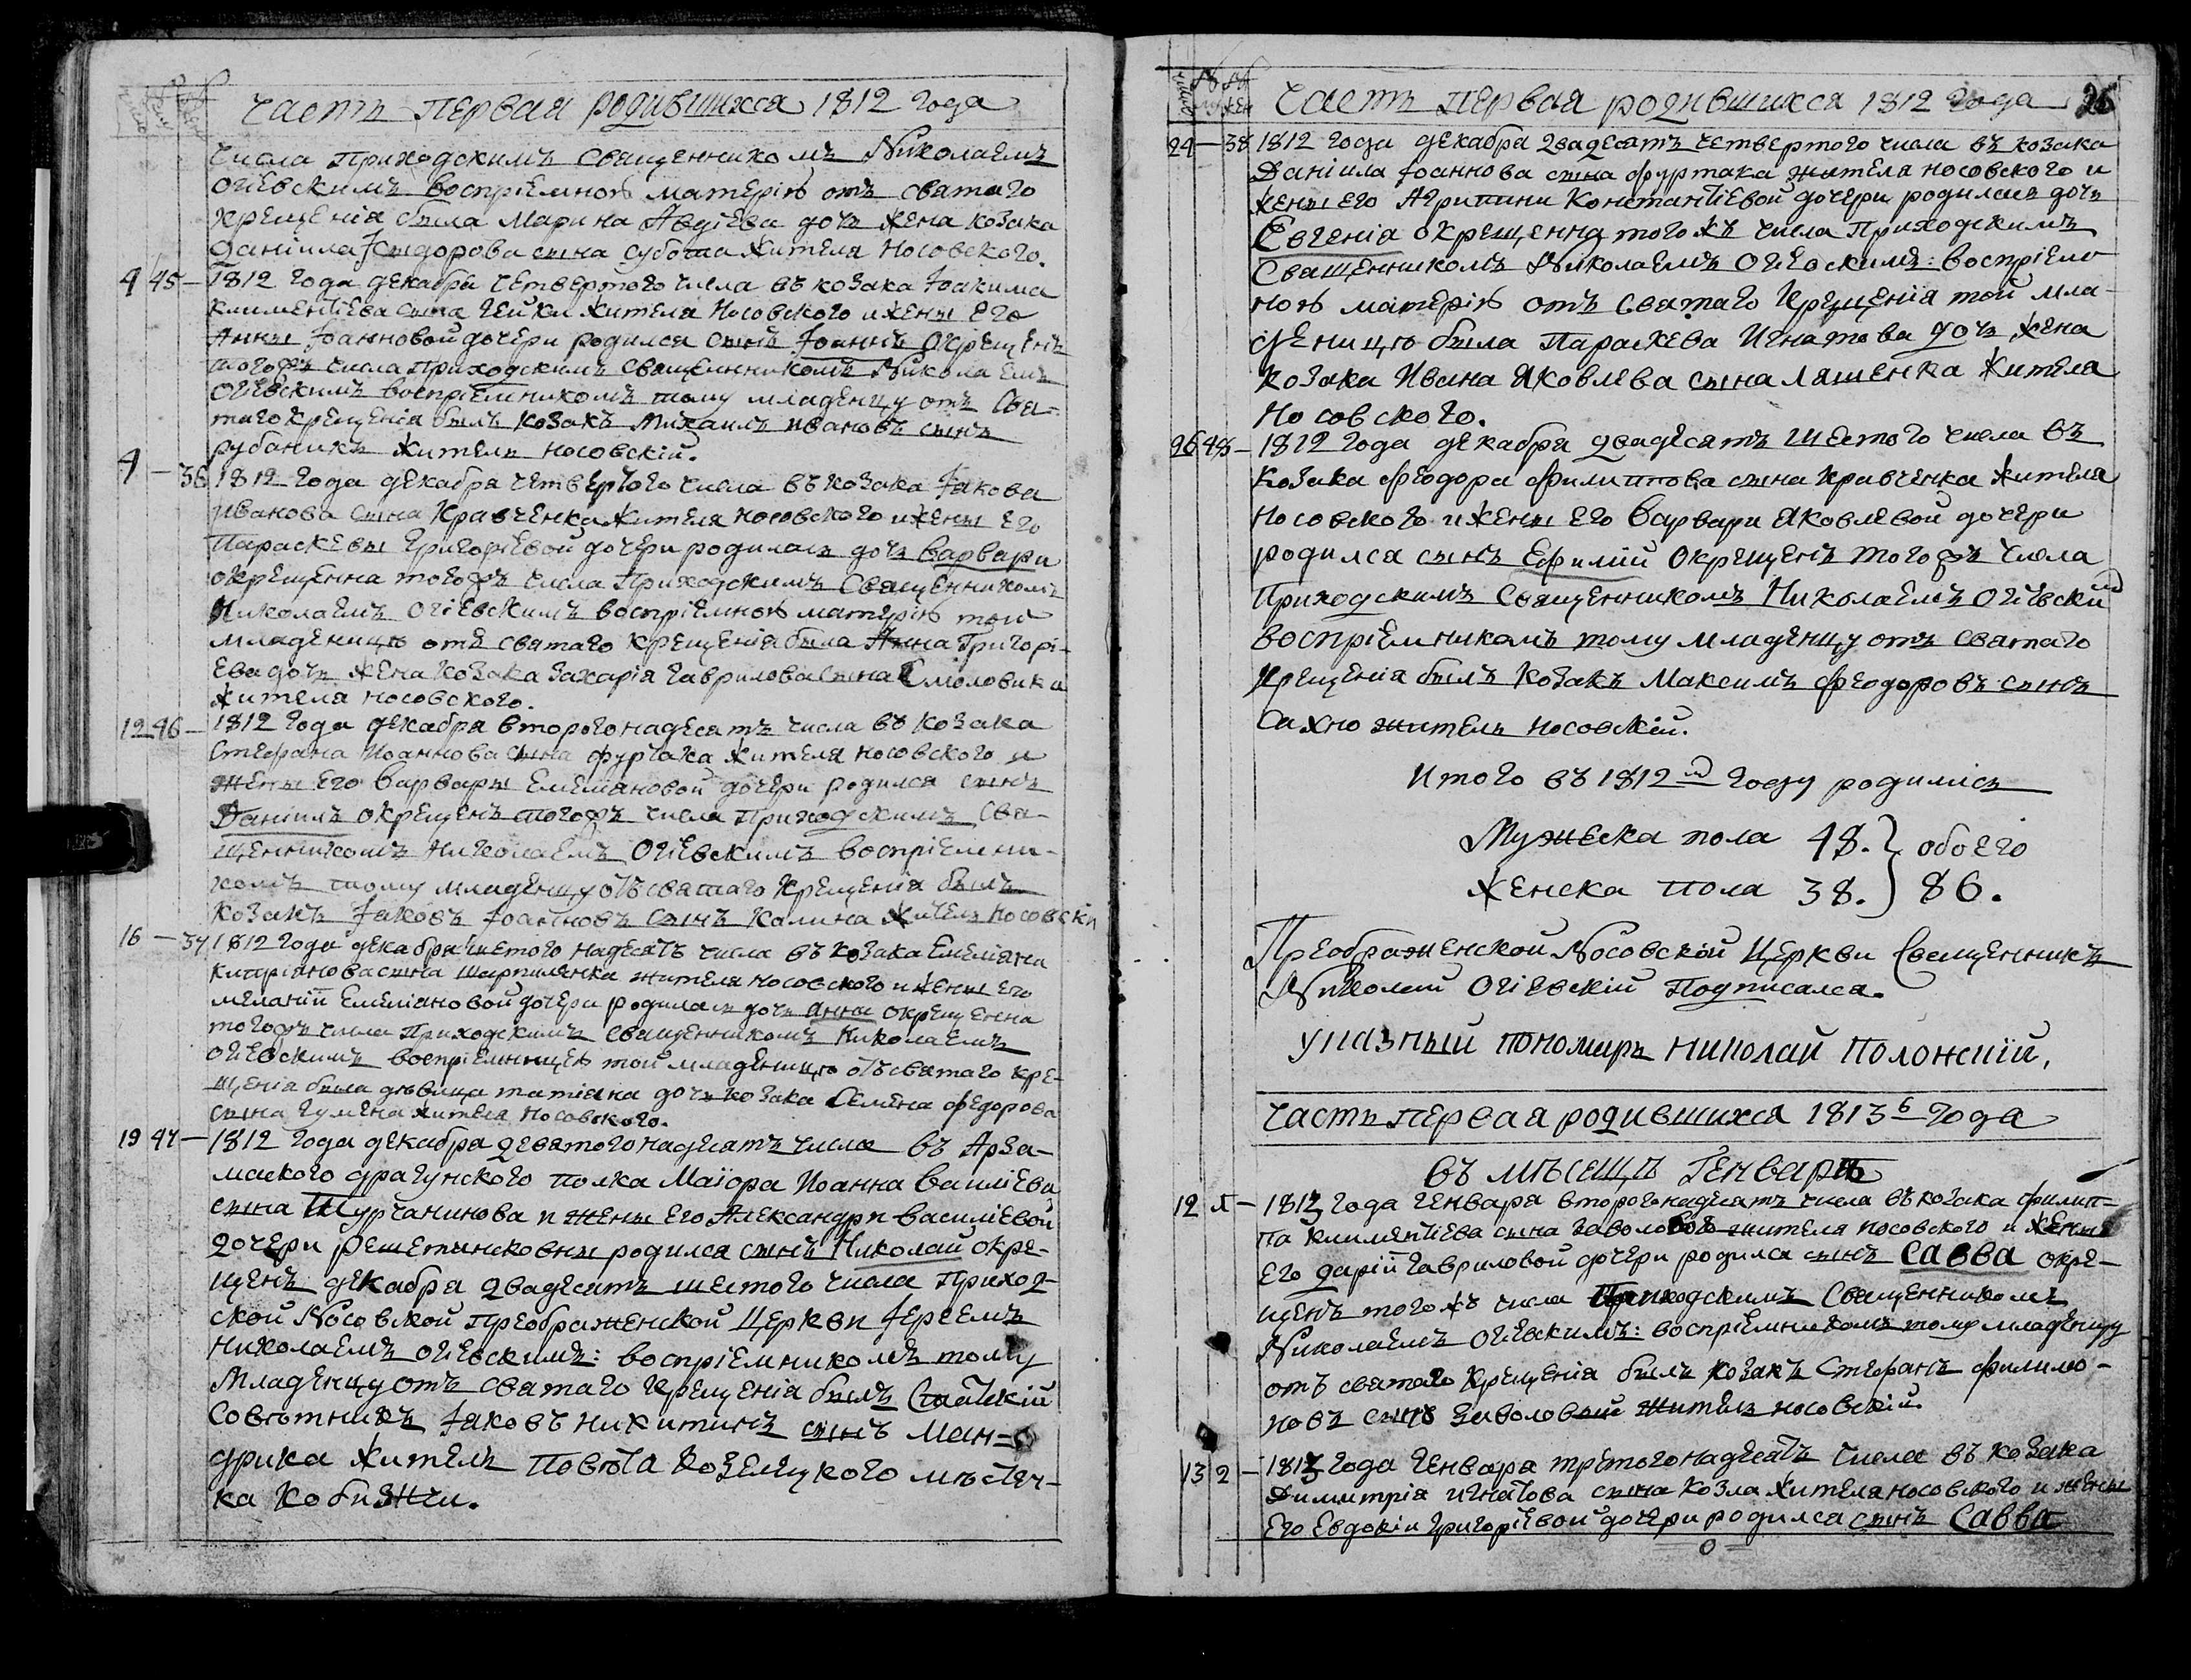 часть первая родившихся 1812 года
числа приходскимъ священникомъ Николаемъ
Огіевскимъ воспріемною матерію отъ святаго
крещенія была Марина Авдіева дочь жена козака
Даніила Сидорова сына Субота жителя Носовского.
4 45 — 1812 года декабря четвертого числа въ козака Іоакима
климентіева сына Гейки жителя Носовского и жены его
Анны Іоанновой дочери родился сынъ Іоаннъ окрещенъ
тогожъ числа приходскимъ священникомъ Николаемъ
Огіевскимъ воспріемникомъ тому младенцу отъ свя-
таго крещенія былъ козакъ Михаилъ ивановъ сынъ
рубаникъ житель носовскій.
4 — 36 1812 года декабря четвертого числа въ козака Іакова
иванова сына Кравченка жителя носовского и жены его
Параскевы григоріевой дочери родилась дочь варвара
окрещенна тогожъ числа Приходскимъ Священникомъ
Николаемъ Огіевскимъ воспріемною матерію той
младеницю отъ святаго крещенія была Анна Григорі-
ева дочь жена козака Захарія гаврилова сына Смоловика
жителя носовского.
12 46 — 1812 года декабря второгонадесять числа въ козака
Стефана Иоаннова сына фурсака жителя носовского и
жены его Варвары Емелиановой дочери родился сынъ
Даніилъ окрещенъ тогожъ числа приходскимъ свя-
щенникомъ Николаемъ Огіевскимъ воспріемни-
комъ тому младенцу отъ святаго крещенія былъ
козакъ Іаковъ Іоанновъ сынъ Калина житель носовскій
16 — 37 1812 года декабря шестого надесять числа въ козака Емеліяна
кипріянова сына Шарпиленка жителя носовского и жены его
меланіи Емеліановой дочери родилась дочь анна окрещенна
тогожъ числа Приходскимъ священникомъ Николаемъ
Огіевскимъ воспріемницею той младеницю отъ святаго кре-
щенія была дѣвица татіана дочь козака Семена федорова
сына гумена жителя носовского.
19 47 — 1812 года декабря девятогонадесять числа въ Арза-
маского драгунского полка Маіора Иоанна Василіева
сына Турчанинова и жены его Александри василіевой
дочери решетинсковны родился сынъ Николай окре-
щенъ декабря двадесять шестого числа Приход-
ской Носовской Преображенской Церкви Іереемъ
Николаемъ Огіевскимъ: воспріемникомъ тому
младенцу отъ святаго крещенія былъ Статскій
совѣтникъ Іаковъ никитинъ сынъ Ман-
дрика житель Повѣта козелецкого мѣстеч-
ка Кобижчи.
часть первая родившихся 1812 года 26
24 — 38 1812 года декабря двадесять четвертого числа въ козака
Даніила Іоаннова сына фурсака жителя носовского и
жены его Агрипины Константіевой дочери родилась дочь
Евгенія окрещенна того жъ числа Приходскимъ
Священникомъ Николаемъ Огіевскимъ: воспріем
ною матерію отъ святаго Крещенія той мла-
деницю была Параскева Игнатова дочь жена
козака Ивана Яковлева сына Ляшенка жителя
Носовского.
26 48 — 1812 года декабря двадесять шестого числа въ
козака Феодора Филиппова сына Кравченка жителя
Носовского и жены его варвари Яковлевой дочери
родился сынъ Ефимій окрещенъ тогожъ числа
Приходскимъ Священникомъ Николаемъ Огіевским
воспріемникомъ тому младенцу отъ святаго
крещенія былъ козакъ Максимъ Феодоровъ сынъ
Сахно житель носовскій.
Итого въ 1812м году родилісь
Мужеска пола 48. } обоего
женска пола 38. } 86.
Преображенской Носовской Церкви Священникъ
Николай Огіевскій Подписался.
указный пономарь николай Положскій,
часть первая родившихся 1813г года
въ мѣсецѣ Генварѣ
12 1 — 1813 года генваря второгонадесять числа въ козака филип-
па климентіева сына заволового жителя носовского и жены
его дарій гавриловой дочери родился сынъ Савва окре-
щенъ того жъ числа Приходскимъ Священникомъ
Николаемъ Огіевскимъ: воспріемникомъ тому младенцу
отъ святаго крещенія былъ козакъ Стефанъ филимо-
новъ сынъ Заволовый житель носовскій.
13 2 — 1813 года генваря третогонадесять числа въ козака
Димитрія игнатова сына Козла жителя носовского и жены
его Евдокіи григоріевой дочери родился сынъ Савва